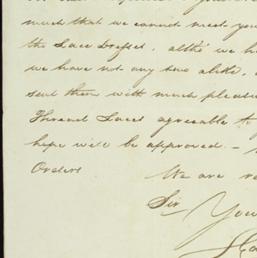 much that we cannot meet you
the Lace Dresses. altho' we h
we have not any two alike,
sent them with much pleasu
Thread Laces agreeable to y
hope will be approved –
Orders
We are re
Sir
You